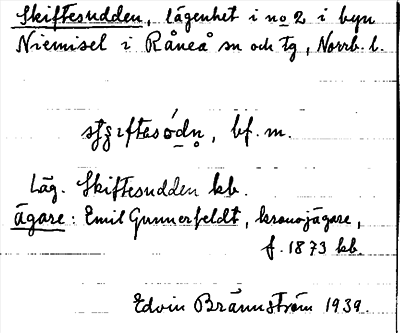 Skiftesudden, lägenhet i no 2 i byn
Niemisel i Råneå sn och tg, Norrb. l.
bf. m.
Läg. Skiftesudden kb.
Ägare: Emil Gunnerfeldt, kronojägare,
f. 1873 kb.
Edvin Brännström 1939.